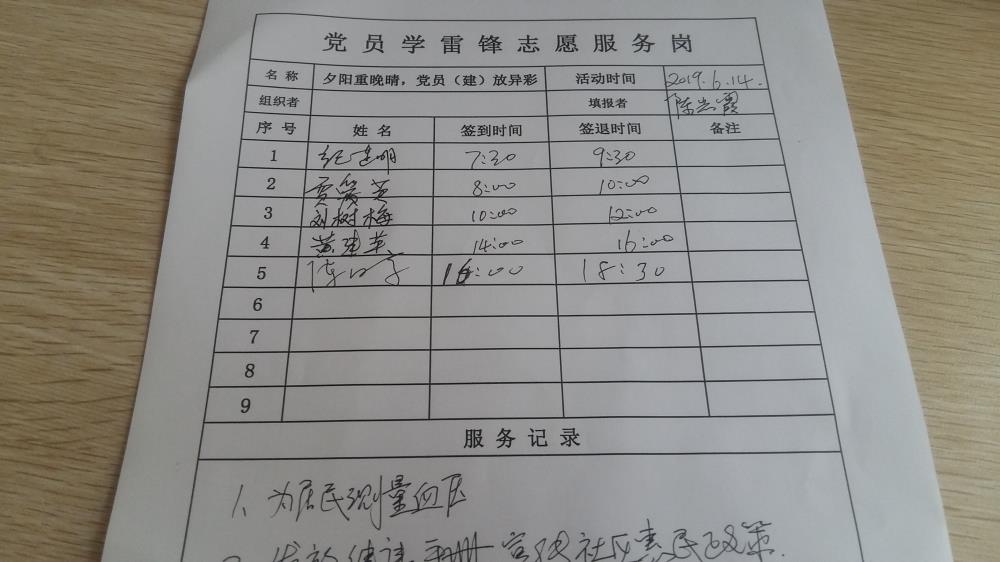 党员学雷锋志愿服务岗
名称 夕阳重晚晴，党员（建）放异彩 活动时间 2019.6.14.
组织者 填报者 陈志霞
序号 姓名 签到时间 签退时间 备注
1 纪建明 7:30 9:30
2 贾爱英 8:00 10:00
3 刘树梅 10:00 12:00
4 黄建英 14:00 16:00
5 陈 16:00 18:30
6
7
8
9
服务记录
1、为居民测量血压
2、发放健康手册 宣传社区惠民政策